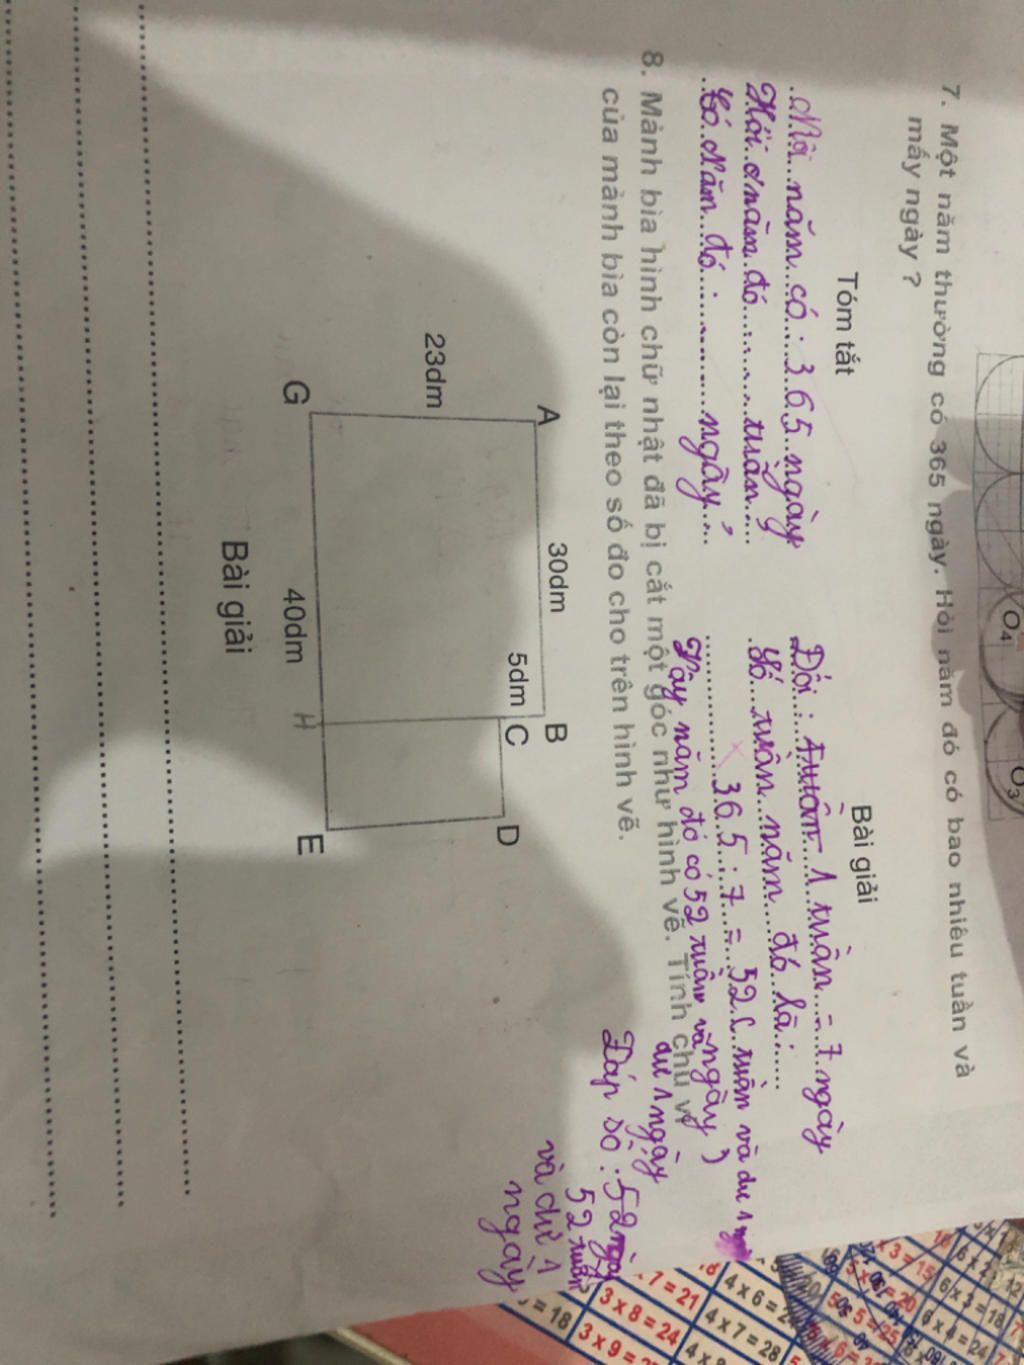 O4
O3
7. Một năm thường có 365 ngày. Hỏi năm đó có bao nhiêu tuần và
mấy ngày ?
Tóm tắt
năm có : 365 ngày
năm đó : tuần
năm đó : ngày ?
Bài giải
Đổi : 1 tuần = 7 ngày
Số tuần năm đó là :
365 : 7 = 52 ( tuần và dư 1
Vậy năm đó có 52 tuần và ngày )
dư 1 ngày
Đáp số : 52 ngày
52 tuần
và dư 1
ngày
8. Mảnh bìa hình chữ nhật đã bị cắt một góc như hình vẽ. Tính chu vi
của mảnh bìa còn lại theo số đo cho trên hình vẽ.
A
30dm
B
5dm
C
D
23dm
G
40dm
H
E
Bài giải
7 = 21
3 x 8 = 24
3 x 9 =
= 18
4 x 6 =
4 x 7 = 28
x 3 = 15
5 = 25
6 x 3 = 18
6 x 4 = 24